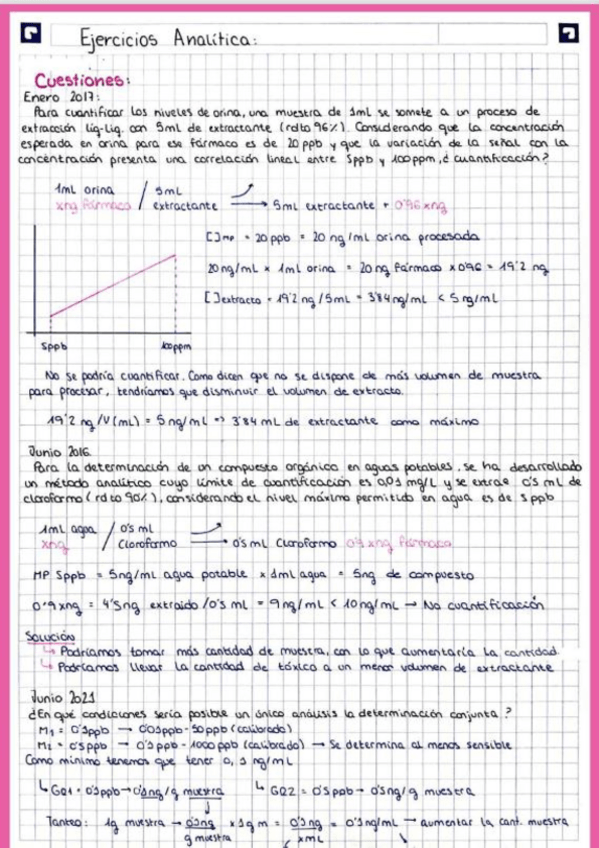 Ejercicios Analítica:
Cuestiones:
Enero 2017:
Para cuantificar los niveles de orina, una muestra de 1ml se somete a un proceso de
extracción líq-líq. con 5ml de extractante (rdto 96%). Considerando que la concentración
esperada en orina para ese fármaco es de 20 ppb y que la variación de la señal con la
concentración presenta una correlación lineal entre 5ppb y 100ppm, ¿cuantificación?
1ml orina / 5ml
xng fármaco / extractante → 5ml extractante + 0'96 xng
[ ]MP = 20 ppb = 20 ng/ml orina procesada
20 ng/mL × 1ml orina = 20 ng fármaco × 0'96 = 19'2 ng
[ ]extracto = 19'2 ng / 5mL = 3'84 ng/mL < 5 ng/mL
5ppb 100ppm
No se podría cuantificar. Como dicen que no se dispone de más volumen de muestra
para procesar, tendríamos que disminuir el volumen de extracto.
19'2 ng /V(mL) = 5 ng/ml => 3'84 mL de extractante como máximo
Junio 2016.
Para la determinación de un compuesto orgánico en aguas potables, se ha desarrollado
un método analítico cuyo límite de cuantificación es 0,01 mg/L y se extrae 0's mL de
cloroformo (rdto 90%), considerando el nivel máximo permitido en agua es de 5 ppb
1ml agua / 0's ml
xng / Cloroformo → 0's ml Cloroformo 0'9 xng fármaco
MP 5ppb = 5ng/mL agua potable × 1ml agua = 5ng de compuesto
0'9 xng = 4'5ng extraido /0's mL = 9 ng/mL < 10 ng/mL → No cuantificación
Solución
↳ Podríamos tomar más cantidad de muestra, con lo que aumentaría la cantidad
↳ Podríamos llevar la cantidad de tóxico a un menor volumen de extractante
Junio 2021
¿En qué condiciones sería posible un único análisis la determinación conjunta?
M1 = 0'1ppb → 0'01ppb-50ppb (calibrado)
M2 = 0'5ppb → 0'1ppb - 1000ppb (calibrado) → Se determina al menos sensible
Como mínimo tenemos que tener 0,1 ng/mL
↳ GQ1 = 0'1ppb → 0'1ng/g muestra ↳ GQ2 = 0's ppb → 0'5ng/g muestra
Tanteo: 1g muestra → 0'1ng × 1g m = 0'1ng = 0'1ng/ml → aumentar la cant. muestra
g muestra xmL